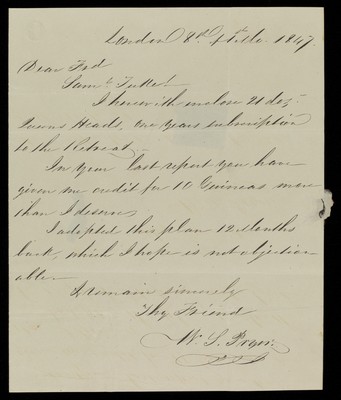 London 8th 4th Mo. 1847.
Dear Frd
Saml Tuke!
I herewith inclose 21 doz
Queens Heads, one years subscription
to the Retreat.
In your last report you have
given me credit for 10 Guineas more
than I deserve,
I adopted this plan 12 Months
back, which I hope is not objection
able.
I remain sincerely
Thy Friend
W. S.